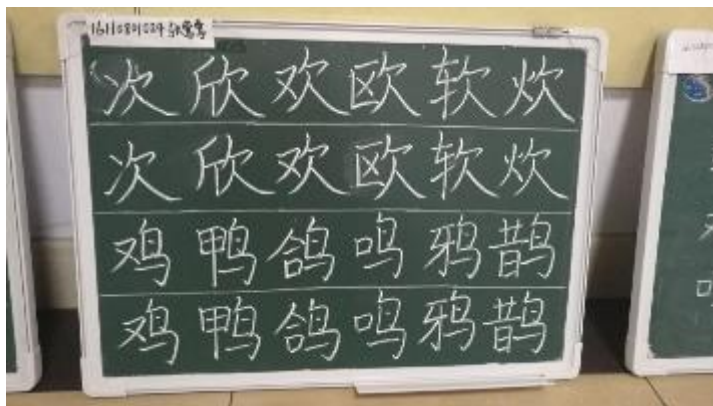 16110801024 张莺莺
次欣欢欧软炊
次欣欢欧软炊
鸡鸭鸽鸣鸦鹊
鸡鸭鸽鸣鸦鹊